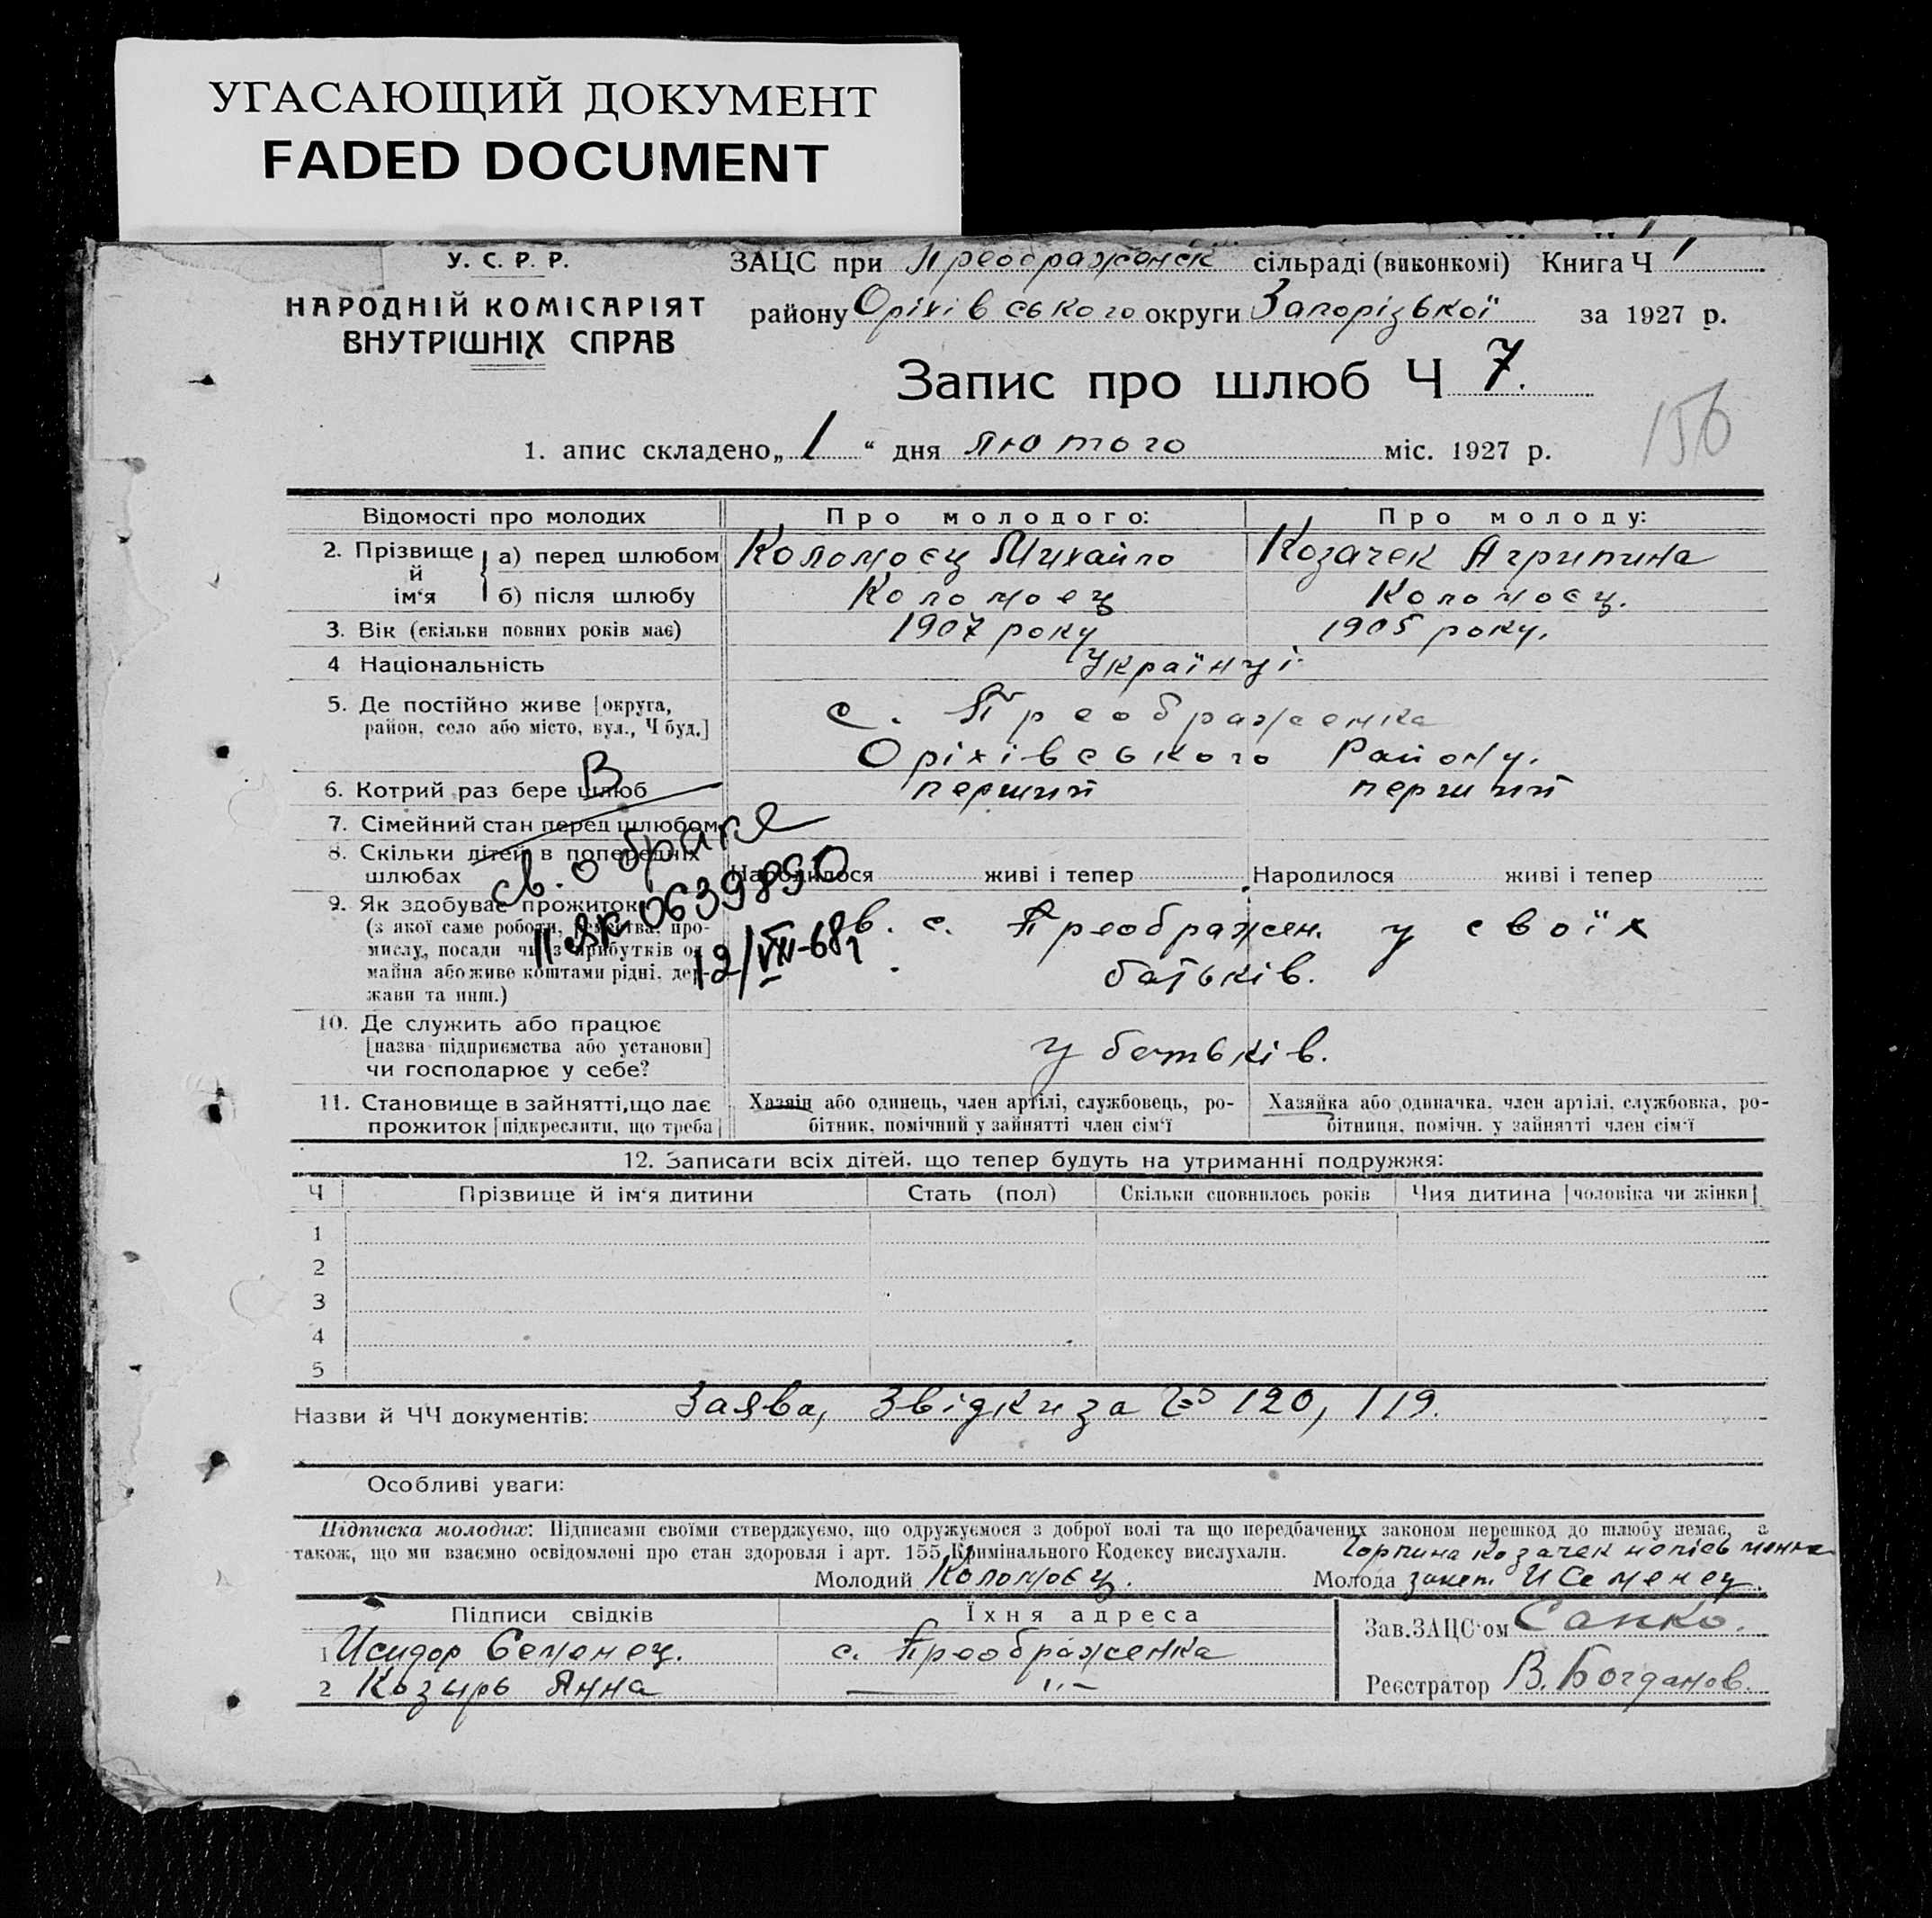 УГАСАЮЩИЙ ДОКУМЕНТ
FADED DOCUMENT
У. С. Р. Р.
НАРОДНІЙ КОМІСАРІЯТ
ВНУТРІШНІХ СПРАВ
ЗАЦС при Преображенск сільраді (виконкомі) Книга Ч 1
району Оріхівського округи Запорізької за 1927 р.
Запис про шлюб Ч 7.
156
1. апис складено „1“ дня лютого міс. 1927 р.
Відомості про молодих Про молодого: Про молоду:
2. Прізвище й ім‘я а) перед шлюбом Коломоєц Михайло Козачек Агрипина
б) після шлюбу Коломоец Коломоєц.
3. Вік (скільки повних років має) 1907 року 1905 року.
4 Національність Українці
5. Де постійно живе [округа, с. Преображенка
район, село або місто, вул., Ч буд.] Оріхівського Району.
6. Котрий раз бере шлюб перший перший
7. Сімейний стан перед шлюбом
8. Скільки дітей в попередніх
шлюбах Народилося живі і тепер Народилося живі і тепер
В
св. о браке
0639890
12/VIII-68
9. Як здобуває прожиток в. с. Преображен. у своїх
(з якої саме роботи, ремества, про- батьків.
мислу, посади чи з прибутків од
майна або живе коштами рідні, дер-
жави та инш.)
10. Де служить або працює
[назва підприємства або установи] у батьків.
чи господарює у себе?
11. Становище в зайнятті, що дає Хазяїн або одинець, член артілі, службовець, ро- Хазяйка або одиначка, член артілі, службовка, ро-
прожиток [підкреслити, що треба] бітник, помічний у зайнятті член сім‘ї бітниця, помічн. у зайнятті член сім‘ї
12. Записати всіх дітей, що тепер будуть на утриманні подружжя:
Ч Прізвище й ім‘я дитини Стать (пол) Скільки сповнилось років Чия дитина [чоловіка чи жінки]
1
2
3
4
5
Назви й ЧЧ документів: Заява, Звідки за № 120, 119.
Особливі уваги:
Підписка молодих: Підписами своїми стверджуємо, що одружуємося з доброї волі та що передбачених законом перешкод до шлюбу немає, а
також, що ми взаємно освідомлені про стан здоровля і арт. 155 Кримінального Кодексу вислухали. Горпина Козачек
Молодий Коломоєц. Молода И Семенец.
Підписи свідків Їхня адреса Зав. ЗАЦС‘ом Сапко.
1 Исидор Семенец. с. Преображенка
2 Козырь Анна — „ — Реєстратор В. Богданов.